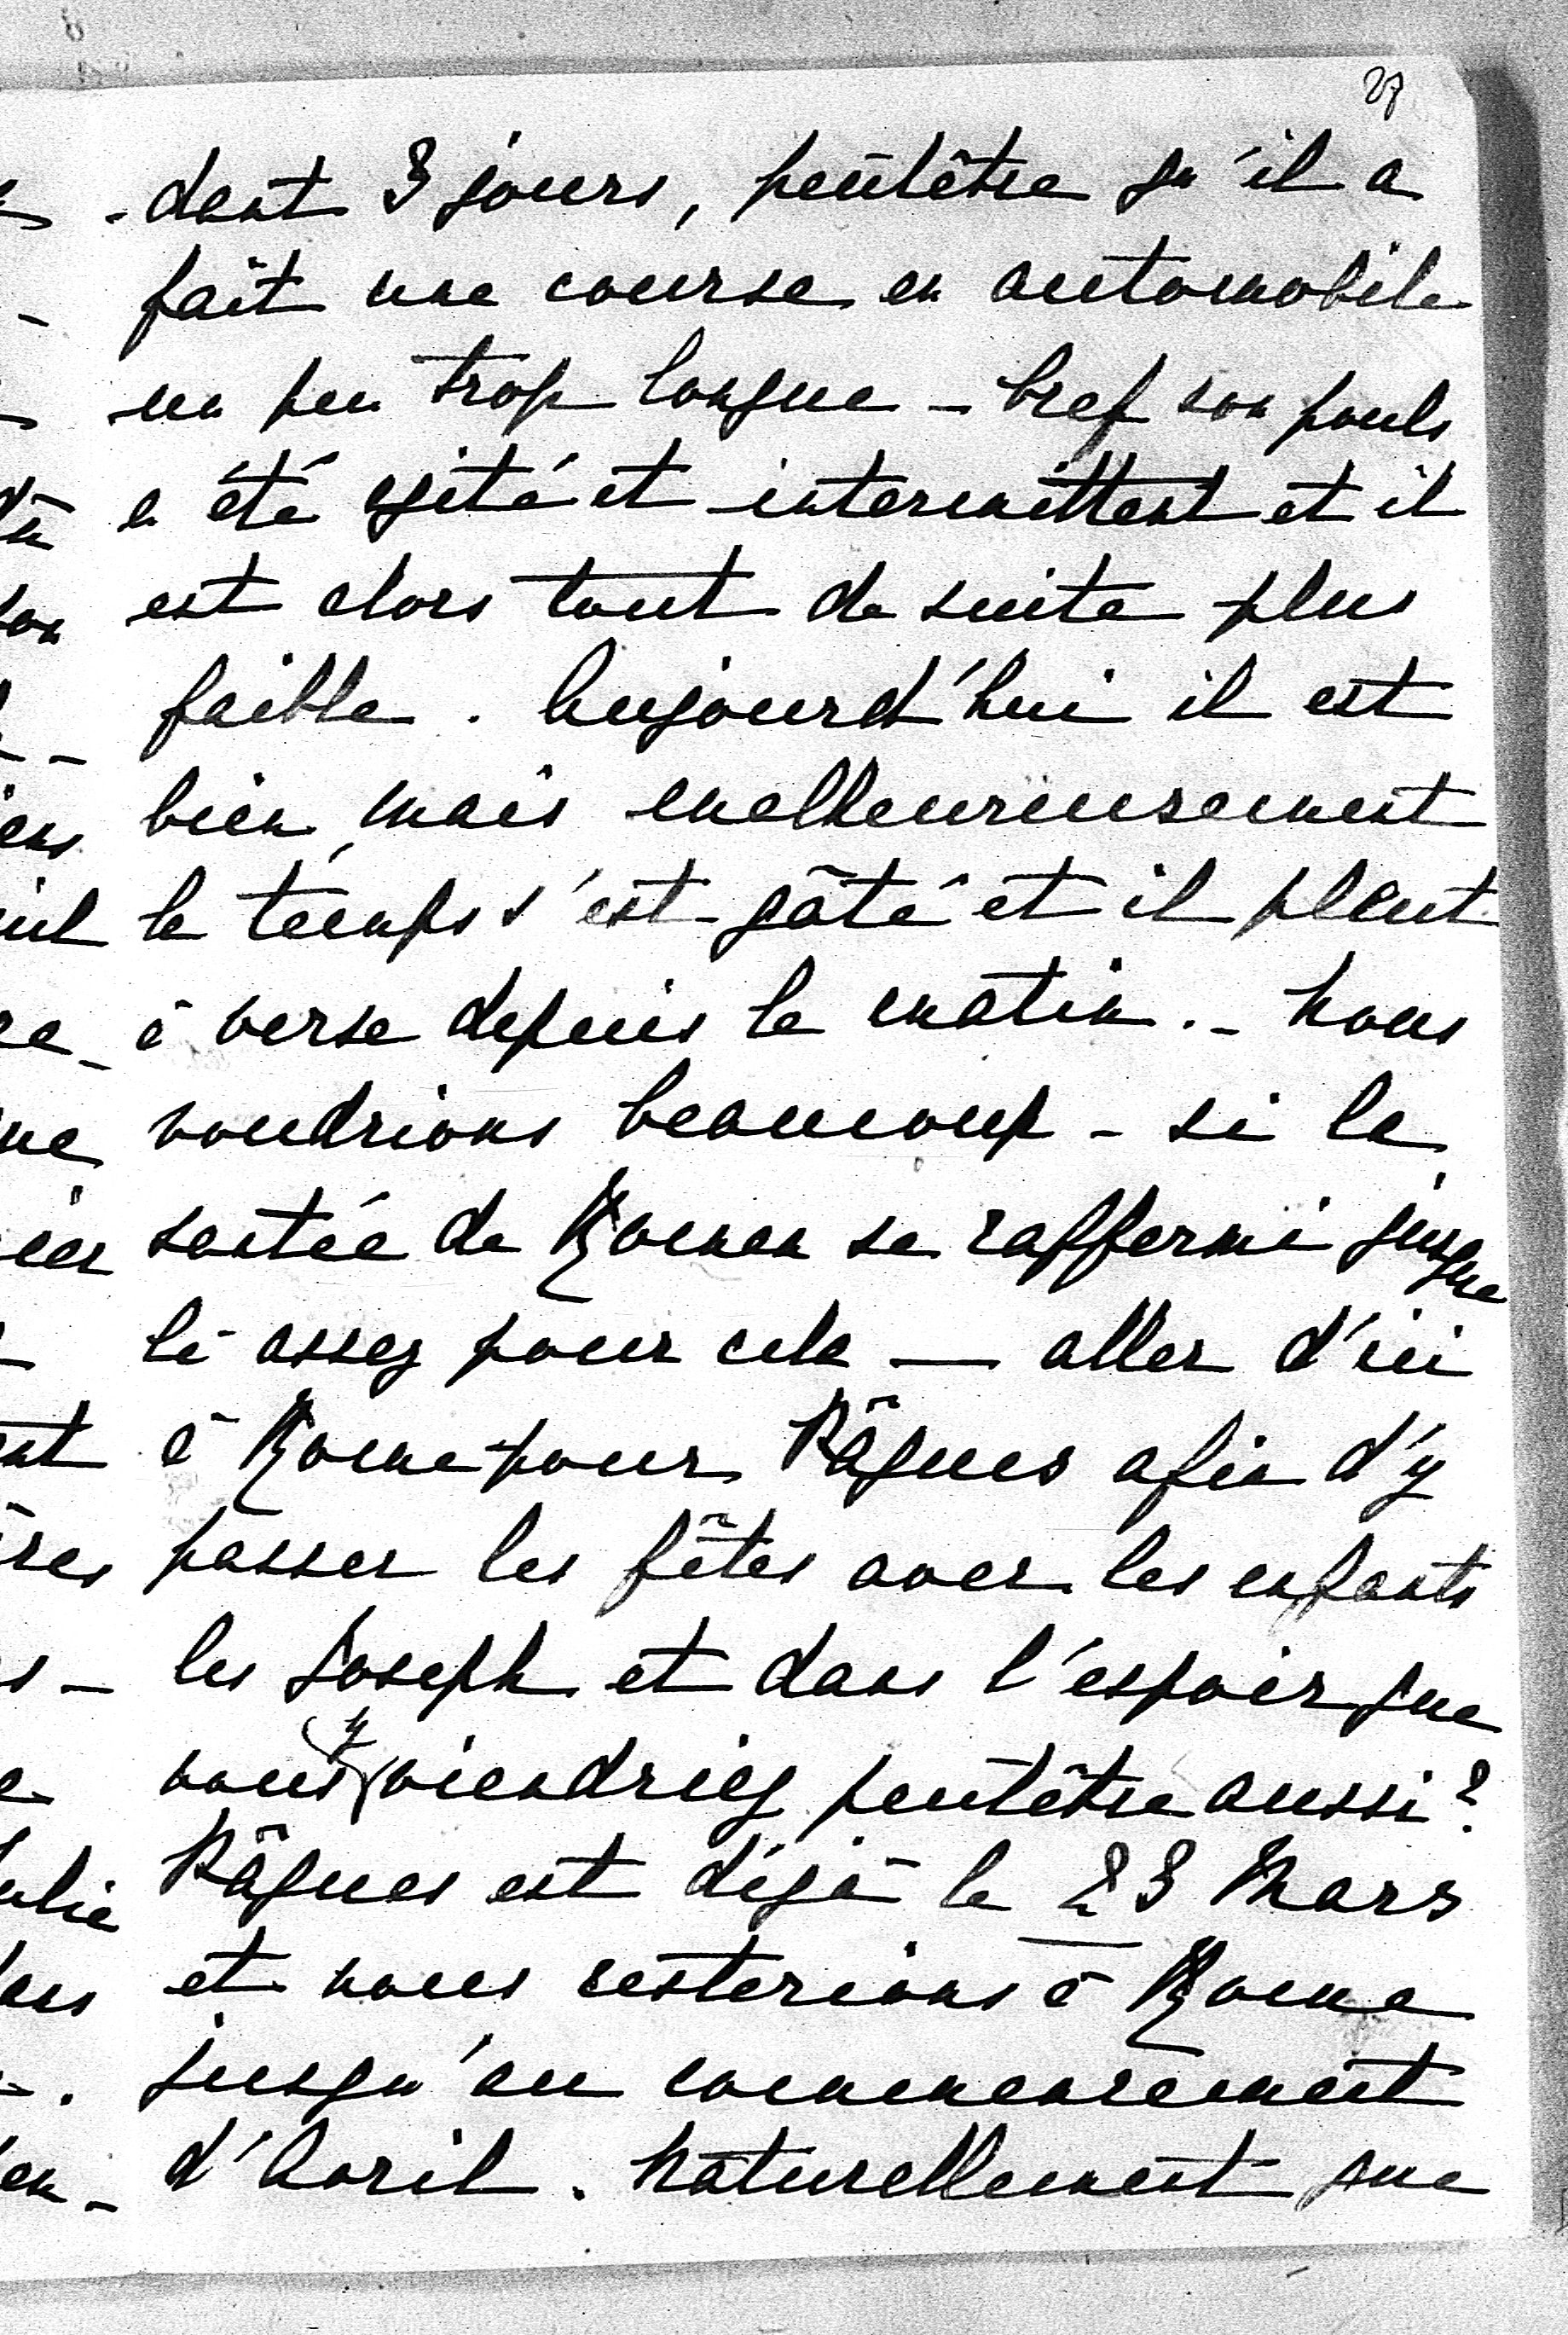 27
-dant 3 jours, peutêtre qu'il a
fait une course en automobile
un peu trop longue - bref son pouls
a été agité et intermittent et il
est alors tout de suite plus
faible. Aujourd'hui il est
bien, mais malheureusement
le temps s'est gâté et il pleut
à verse depuis le matin. - Nous
voudrions beaucoup - si la
santée de Roman se raffermi jusque
là assez pour cela — aller d'ici
à Rome pour Pâques afin d'y
passer les fêtes avec les enfants
les Joseph et dans l'espoir que
vous y viendriez peutêtre aussi?
Pâques est déjà le 23 Mars
et nous resterions à Rome
jusqu'au commencement
d'Avril. Naturellement que